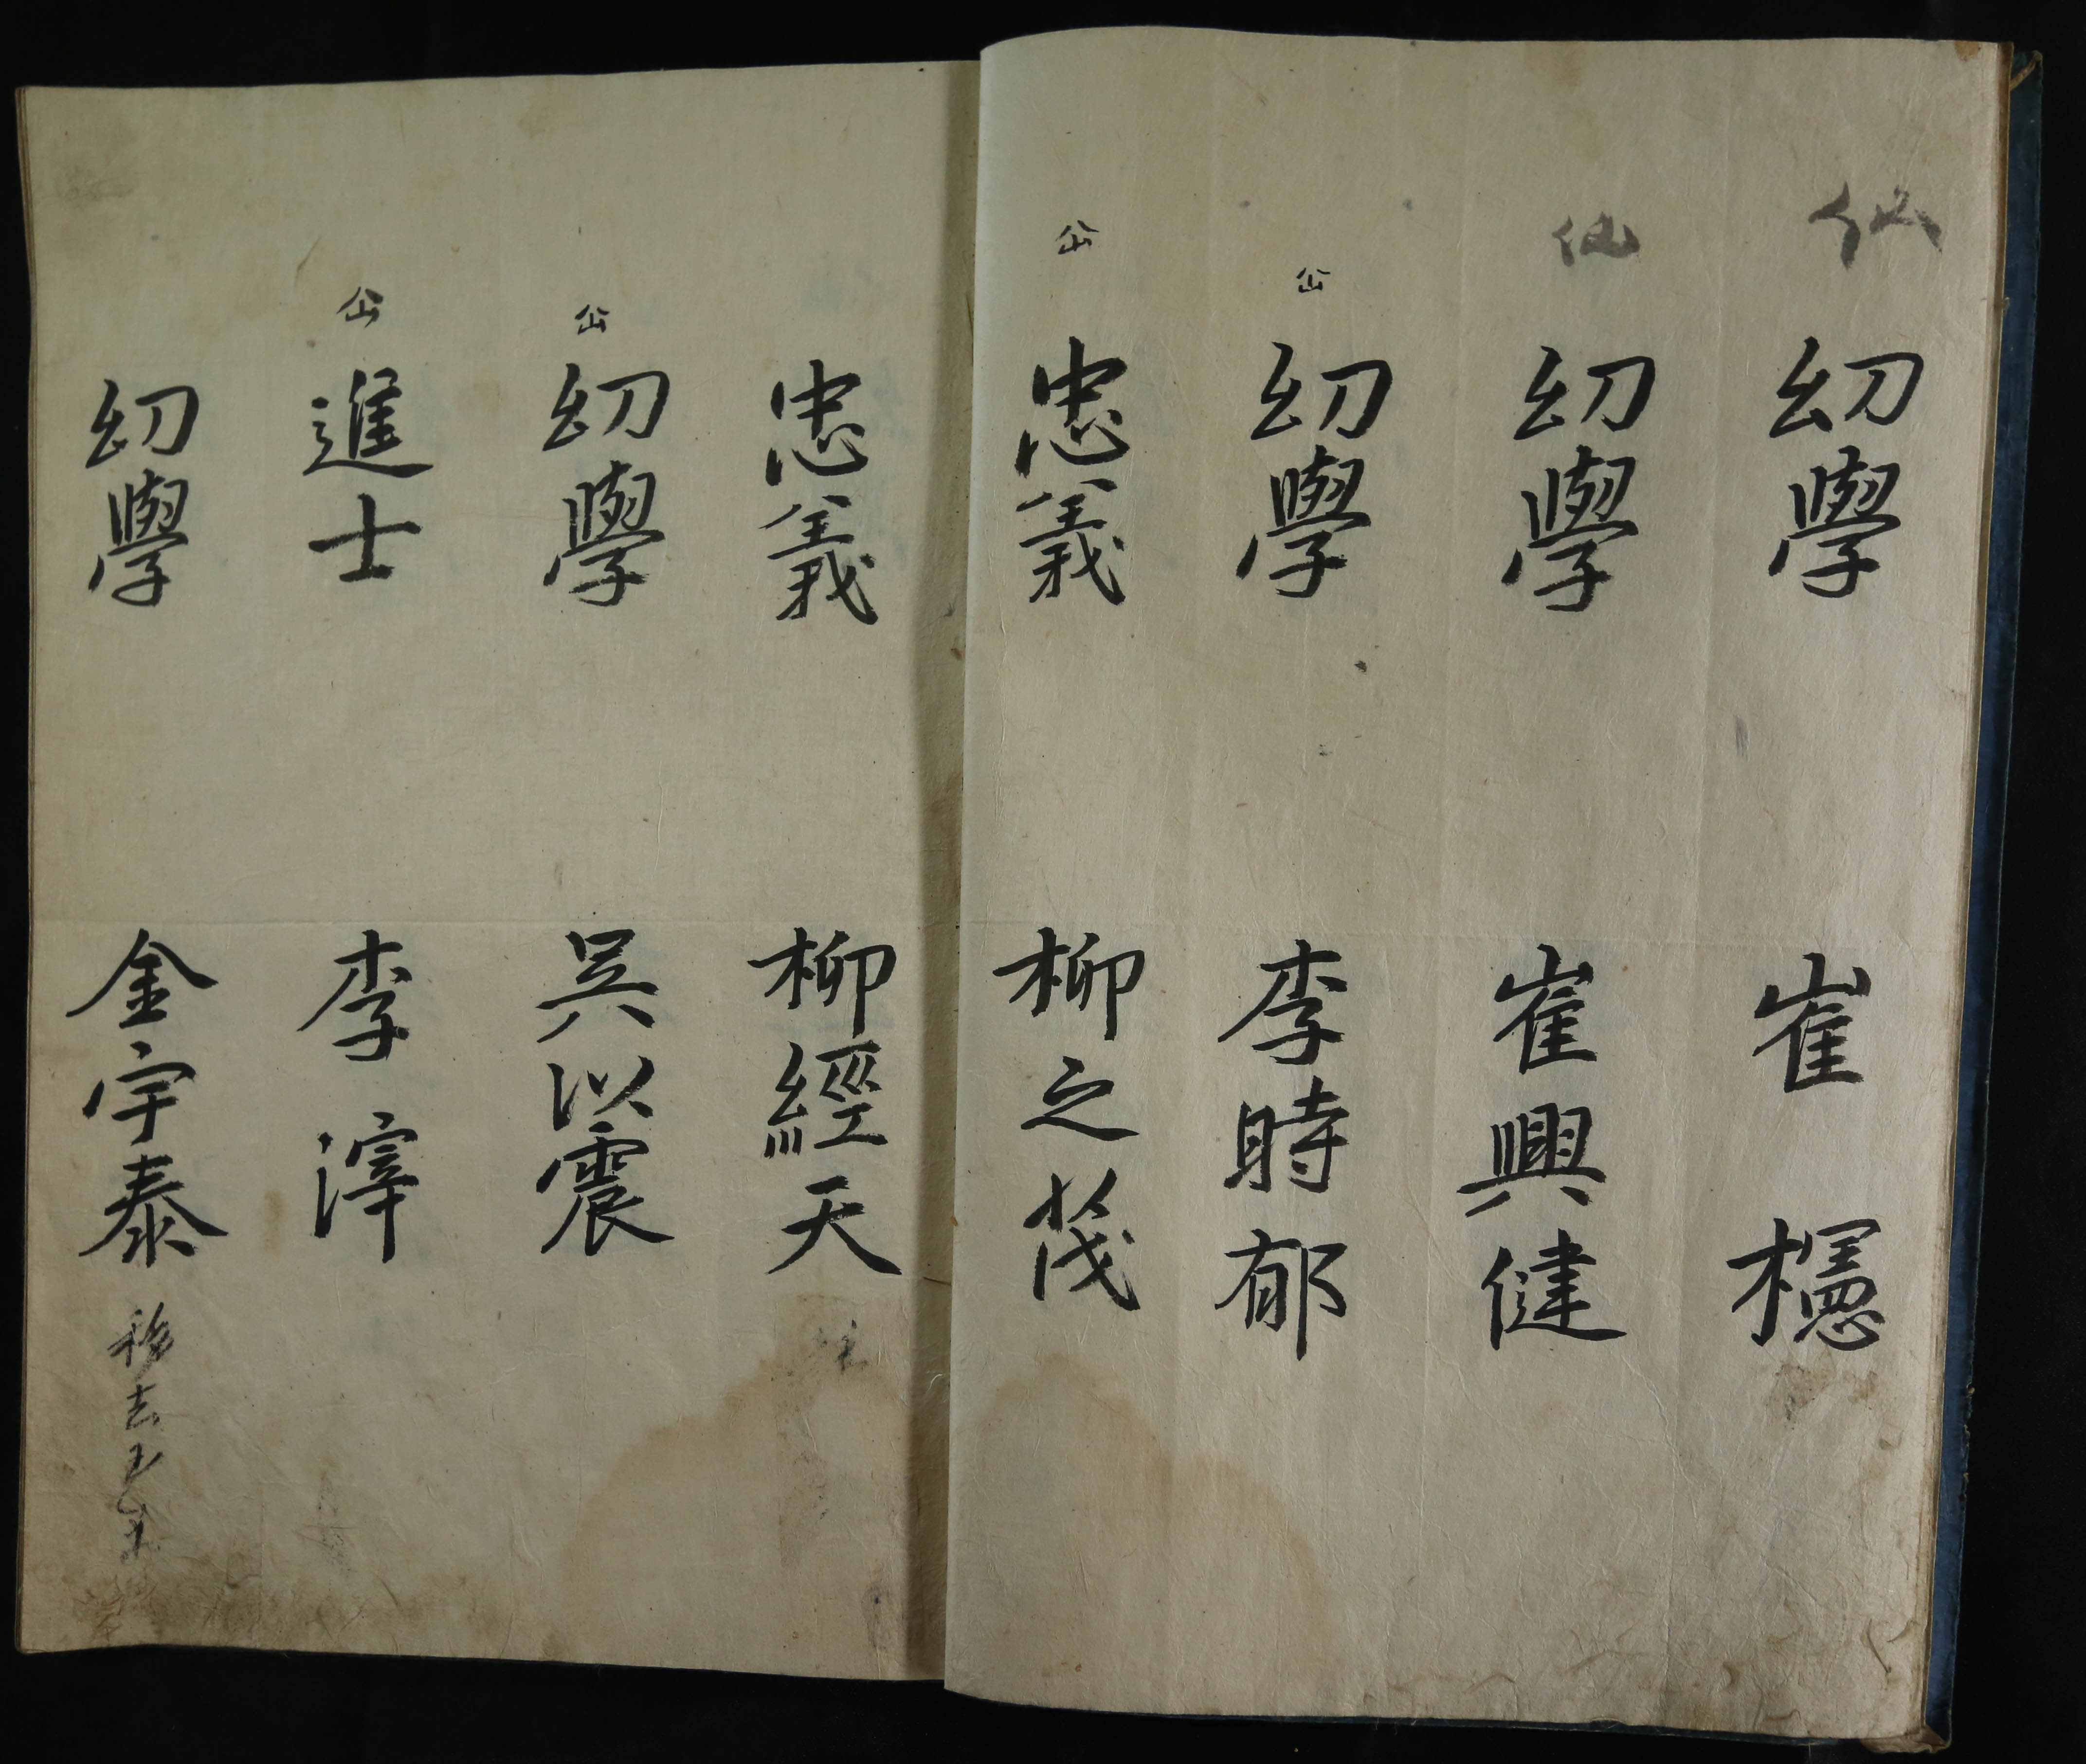 仙 幼學 崔檼
仙 幼學 崔興健
仚 幼學 李時郁
仚 忠義 柳之茂
忠義 柳經天
仚 幼學 吳以震
仚 進士 李滓
幼學 金宇泰 移去